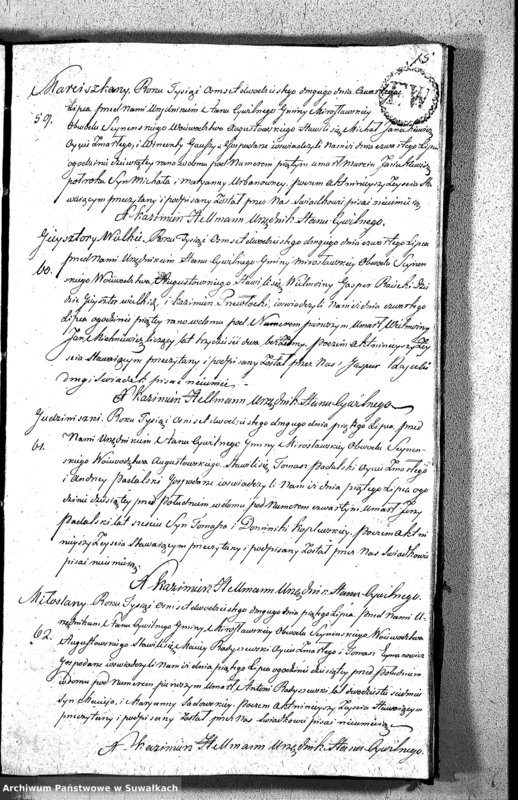 15
FW
Marciszkany. Roku Tysiąc Osmset dwudziestego drugiego dnia Czwartego
59. Lipca przed Nami Urzędnikiem Stanu Cywilnego Gminy Mirosławskiey
Obwodu Seynenskiego Woiewodztwa Augustowskiego Stawili się Michał
Oyciec Zmarłego, i Wincenty Gospodarz i oswiadczyli Nam iż dnia czwartego Lipca
o godzinie dziewiątey rano w domu pod Numerem piątym umarł Marcin
pułroka Syn Michała i Maryanny Urbanowney. poczem Akt ninieyszy Zeyscia Sta
waiącym przeczytany i podpisany Został przez Nas Swiadkowie pisać nieumieią
X. Kazimierz Hellmann Urzędnik Stanu Cywilnego.
Giżysztory Wielkie. Roku Tysiąc Osmset dwudziestego drugiego dnia czwartego Lipca
60. przed Nami Urzędnikiem Stanu Cywilnego Gminy Mirosławskiey Obwodu Seynen
skiego Woiewodztwa Augustowskiego Stawili się Wielmożny Gasper
i Kazimierz oswiadczyli Nam iż dnia czwartego
Lipca o godzinie piątey rano w domu pod Numerem pierwszym Umarł Wielmożny
Jan liczący lat trzydzieści dwa poczem Akt ninieyszy Zey
scia Stawaiącym przeczytany i podpisany Został przez Nas
drugi Swiadek pisać nieumie.
X. Kazimierz Hellmann Urzędnik Stanu Cywilnego
Gudziniszki. Roku Tysiąc Osmset dwudziestego drugiego dnia piątego Lipca, przed
61. Nami Urzędnikiem Stanu Cywilnego Gminy Mirosławskiey Obwodu Seynen
skiego Woiewodztwa Augustowskiego. Stawili się Tomasz Padalski Oyciec Zmarłego
i Andrzey Padalski Gospodarze oswiadczyli Nam iż dnia piątego Lipca o go
dzinie dziesiątey przed Południem w domu pod Numerem czwartym Umarł Jerzy
Padalski lat szesciu Syn Tomasza i Dominiki poczem Akt ni
nieyszy Zeyscia Stawaiącym przeczytany i podpisany Został przez Nas Swiadkowie
pisać nieumieią
X. Kazimierz Hellmann Urzędnik Stanu Cywilnego.
Miłosłany. Roku Tysiąc Osmset dwudziestego drugiego dnia piątego Lipca. przed Nami U
62. rzędnikiem Stanu Cywilnego Gminy Mirosławskiey Obwodu Seynenskiego Woiewodztwa
Augustowskiego Stawili się Maciey Radyszewski Oyciec Zmarłego i Tomasz Szymanowicz
Gospodarze oswiadczyli Nam iż dnia piątego Lipca o godzinie dziesiątey przed Południem
w domu pod Numerem pierwszym Umarł Antoni Radyszewski lat dwadzieścia siedmiu
Syn Macieia, i Maryanny Sadowskiey. poczem Akt ninieyszy Zeyscia Stawaiącym
przeczytany i podpisany Został przez Nas Swiadkowie pisać nieumieią
X. Kazimierz Hellmann Urzędnik Stanu Cywilnego.
Archiwum Państwowe w Suwałkach